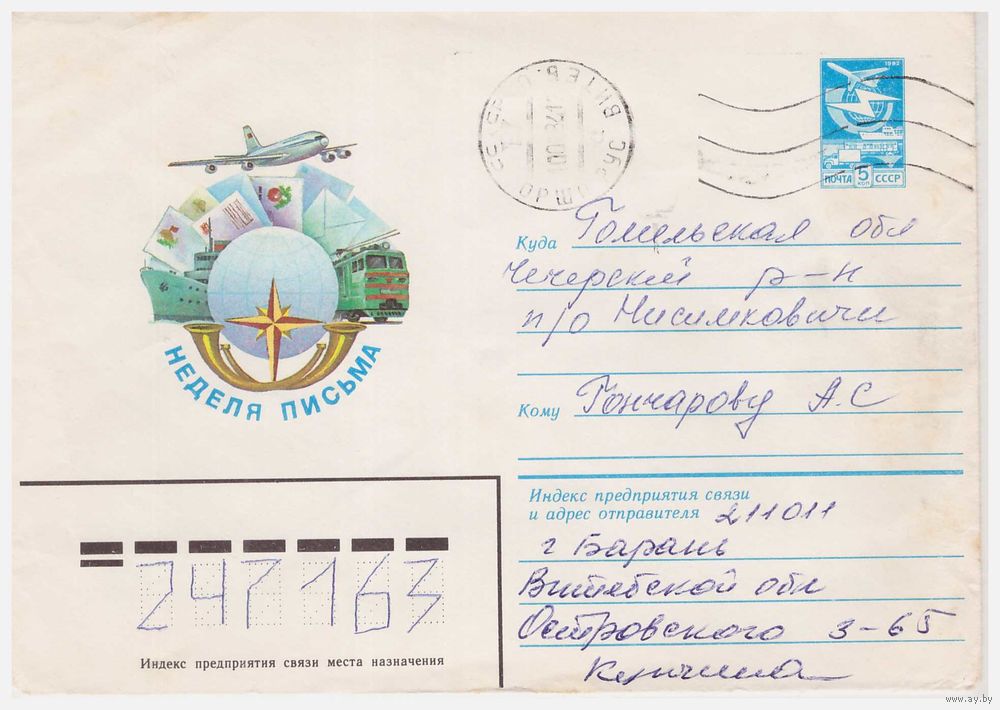 1982
ПОЧТА 5 КОП СССР
ВИТЕБ. ОБ.
ОРША
НЕДЕЛЯ ПИСЬМА
Куда Гомельская обл
Чечерский р-н
п/о Нисимковичи
Кому Гончарову А.С
Индекс предприятия связи
и адрес отправителя 211011
г Барань
Витебской обл
Островского 3-65
247163
Индекс предприятия связи места назначения
www.ay.by